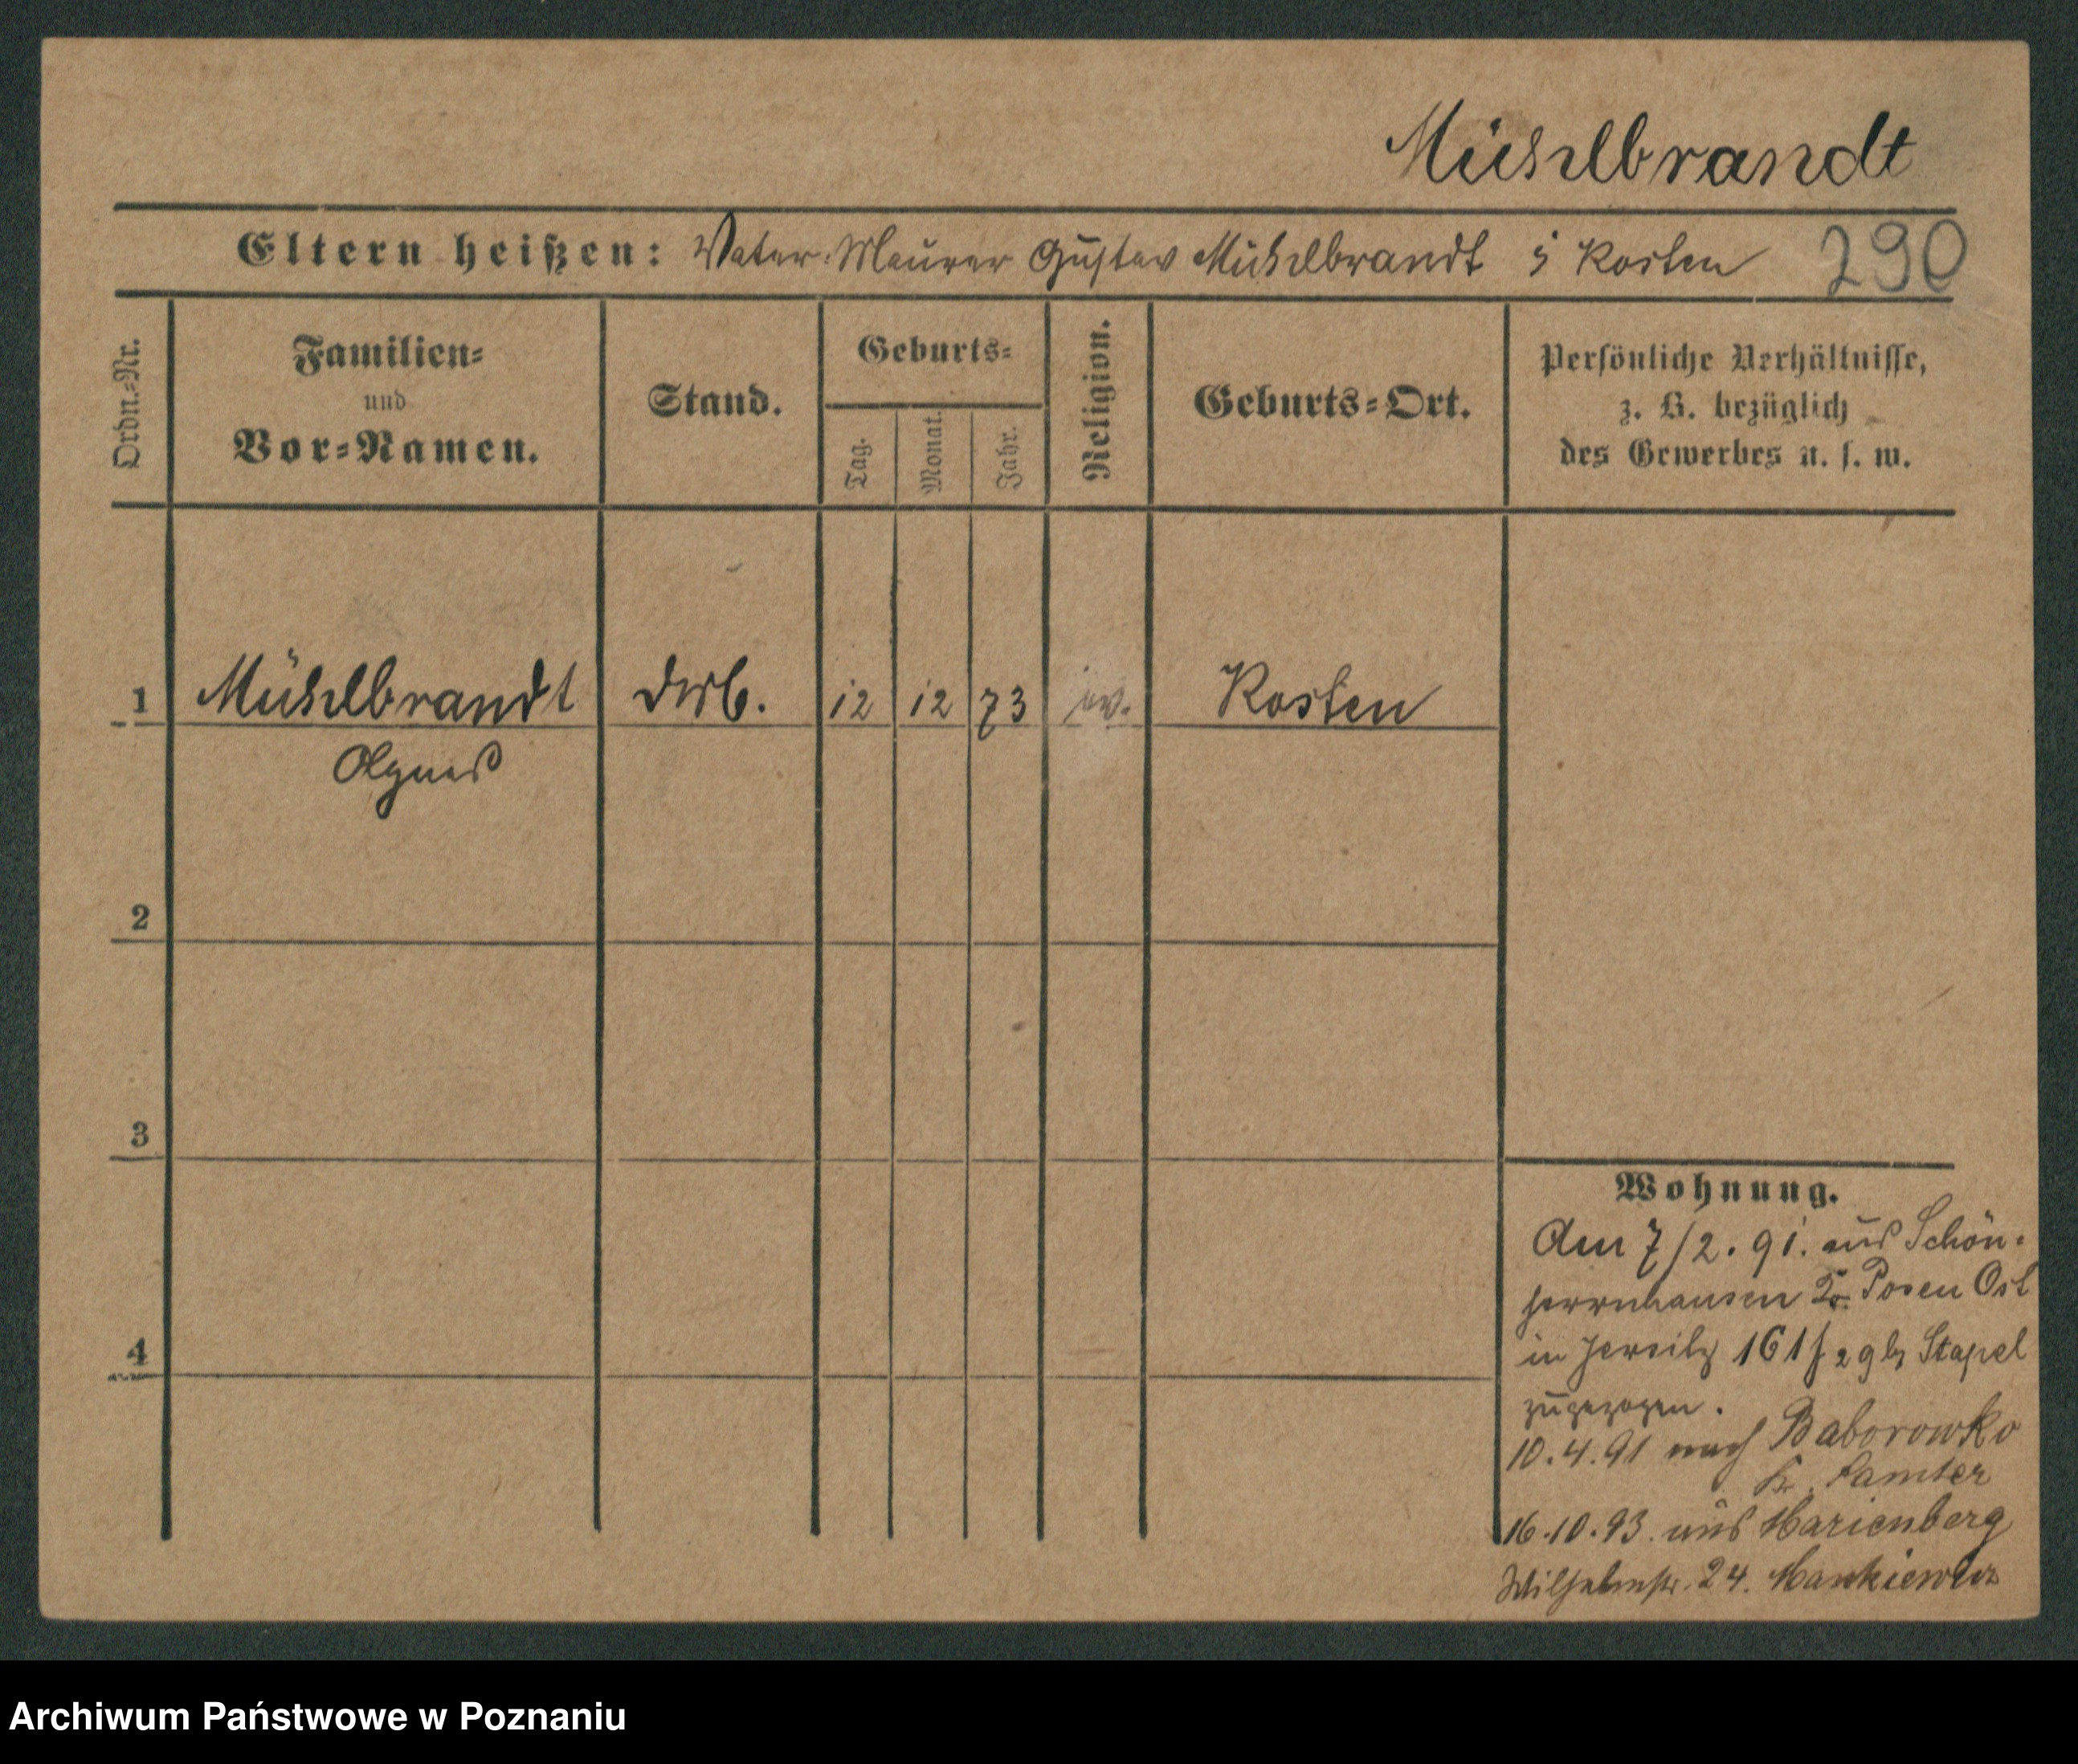 Mühlbrandt
Eltern heißen: Vater: Maurer Gustav Mühlbrandt i Kosten 290
Ordn.=Nr.
Familien=
und
Vor=Namen.
Stand.
Geburts=
Tag.
Monat.
Jahr.
Religion.
Geburts=Ort.
Persönliche Verhältnisse,
z. B. bezüglich
des Gewerbes u. s. w.
1 Mühlbrandt 12 12 73 ev. Kosten
Agnes
2
3
4
Wohnung.
Am 7/2. 91. aus Schön=
herrnhausen Kr. Posen Ost
in Jersitz 161 Stapel
zugezogen.
10.4.91 nach Baborowko
Kr. Samter
16.10.93. aus Marienberg
Wilhelmstr. 24. Mankiewicz
Archiwum Państwowe w Poznaniu